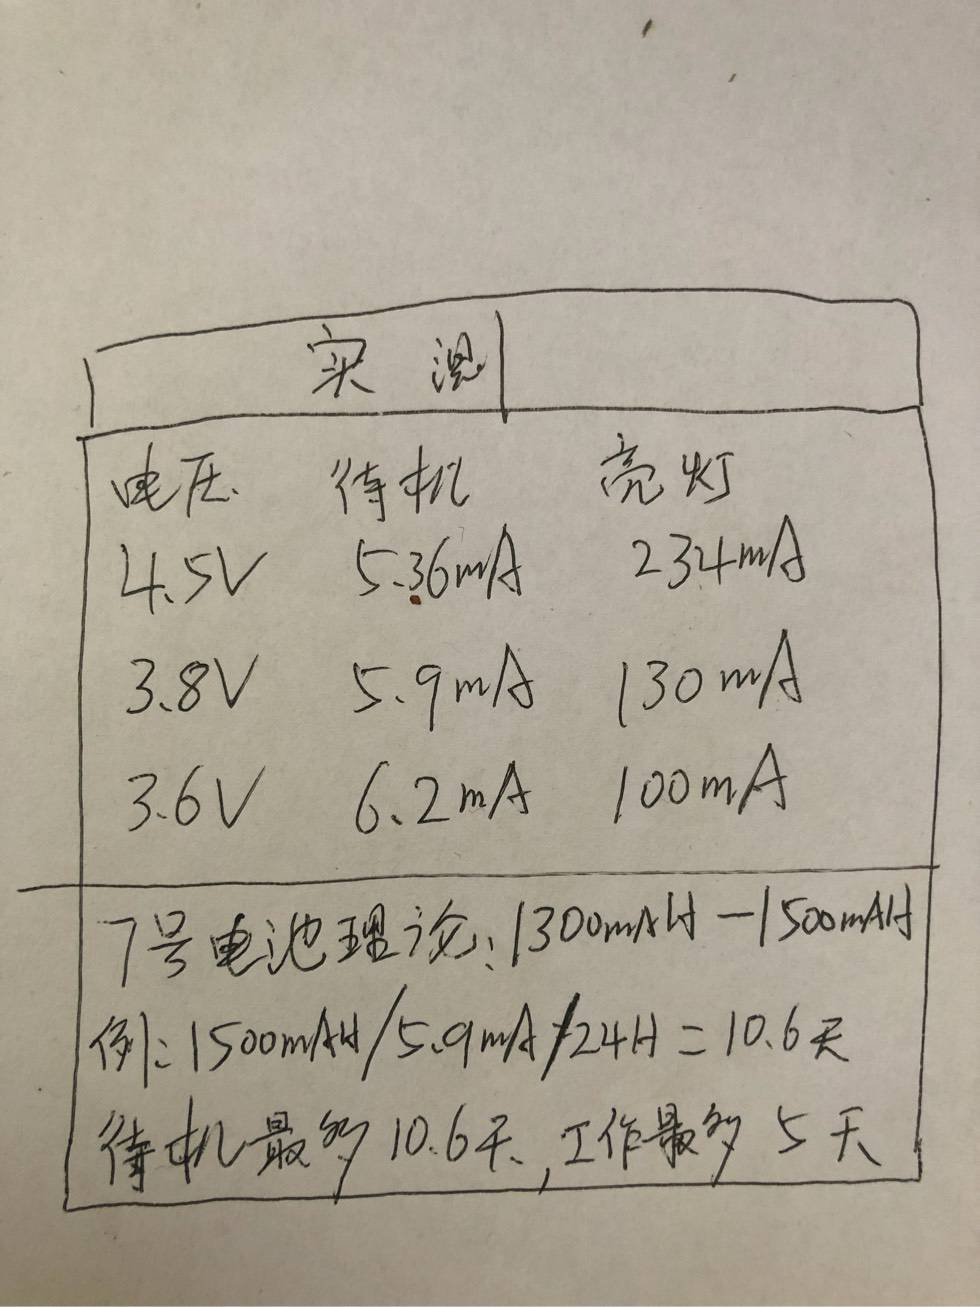 实测
电压 待机 亮灯
4.5V 5.36mA 234mA
3.8V 5.9mA 130mA
3.6V 6.2mA 100mA
7号电池理论:1300mAH-1500mAH
例:1500mAH/5.9mA/24H=10.6天
待机最多10.6天,工作最多5天